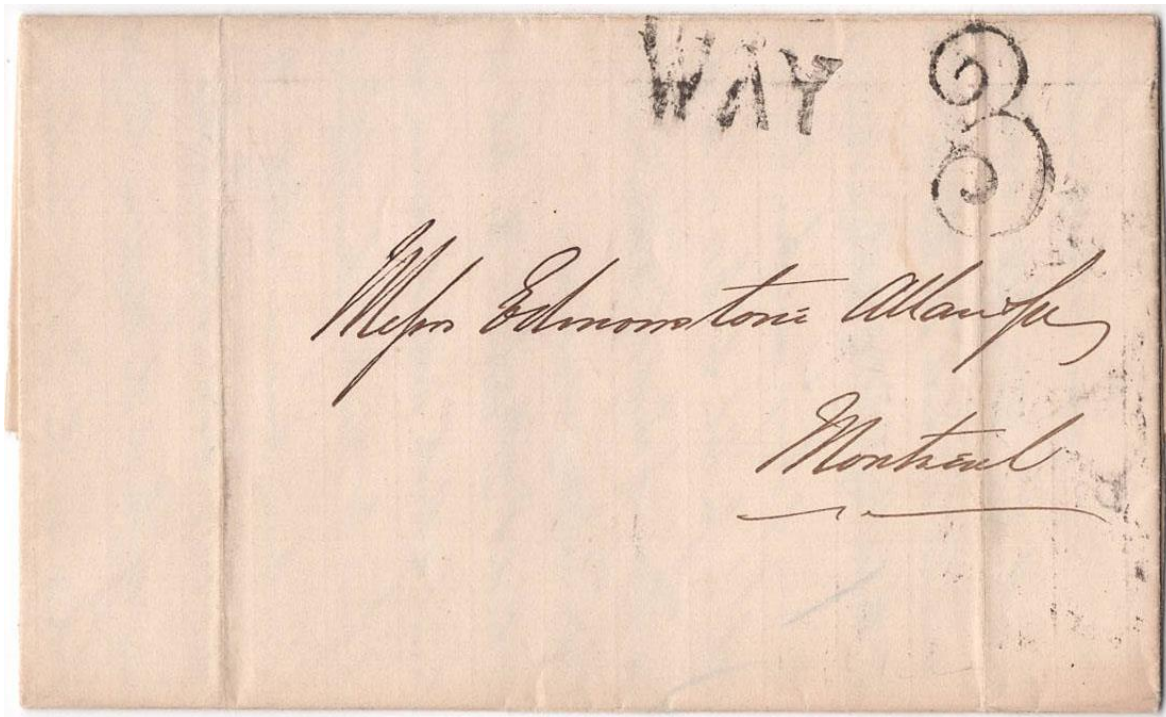 WAY 3
Messrs Edmonstone Allan & Co
Montreal